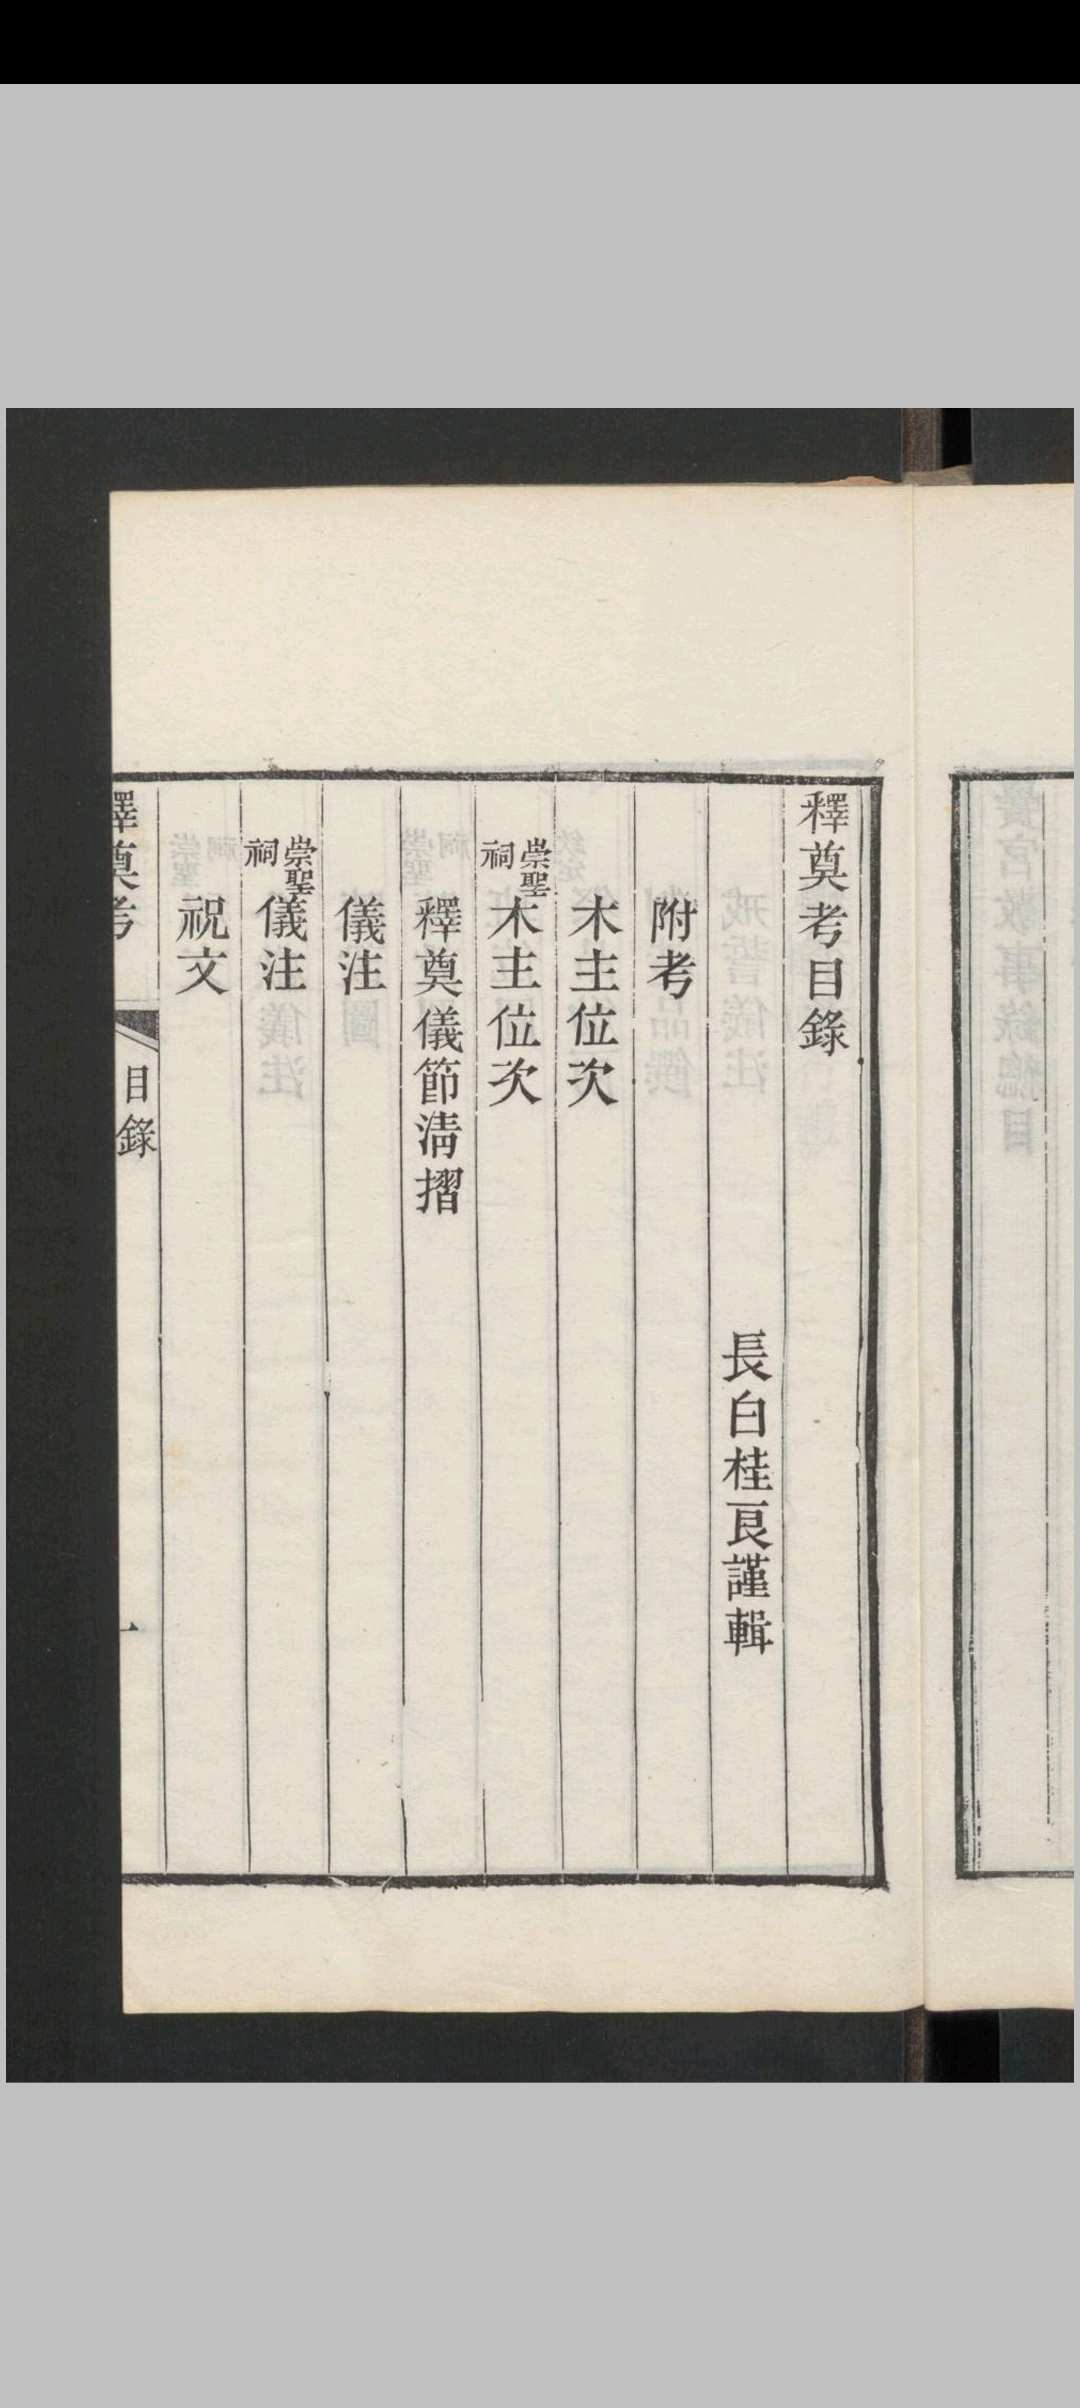 釋奠考目錄
長白桂良謹輯
附考
木主位次
崇聖祠木主位次
釋奠儀節淸摺
儀注
崇聖祠儀注
祝文
釋奠考 目錄 一